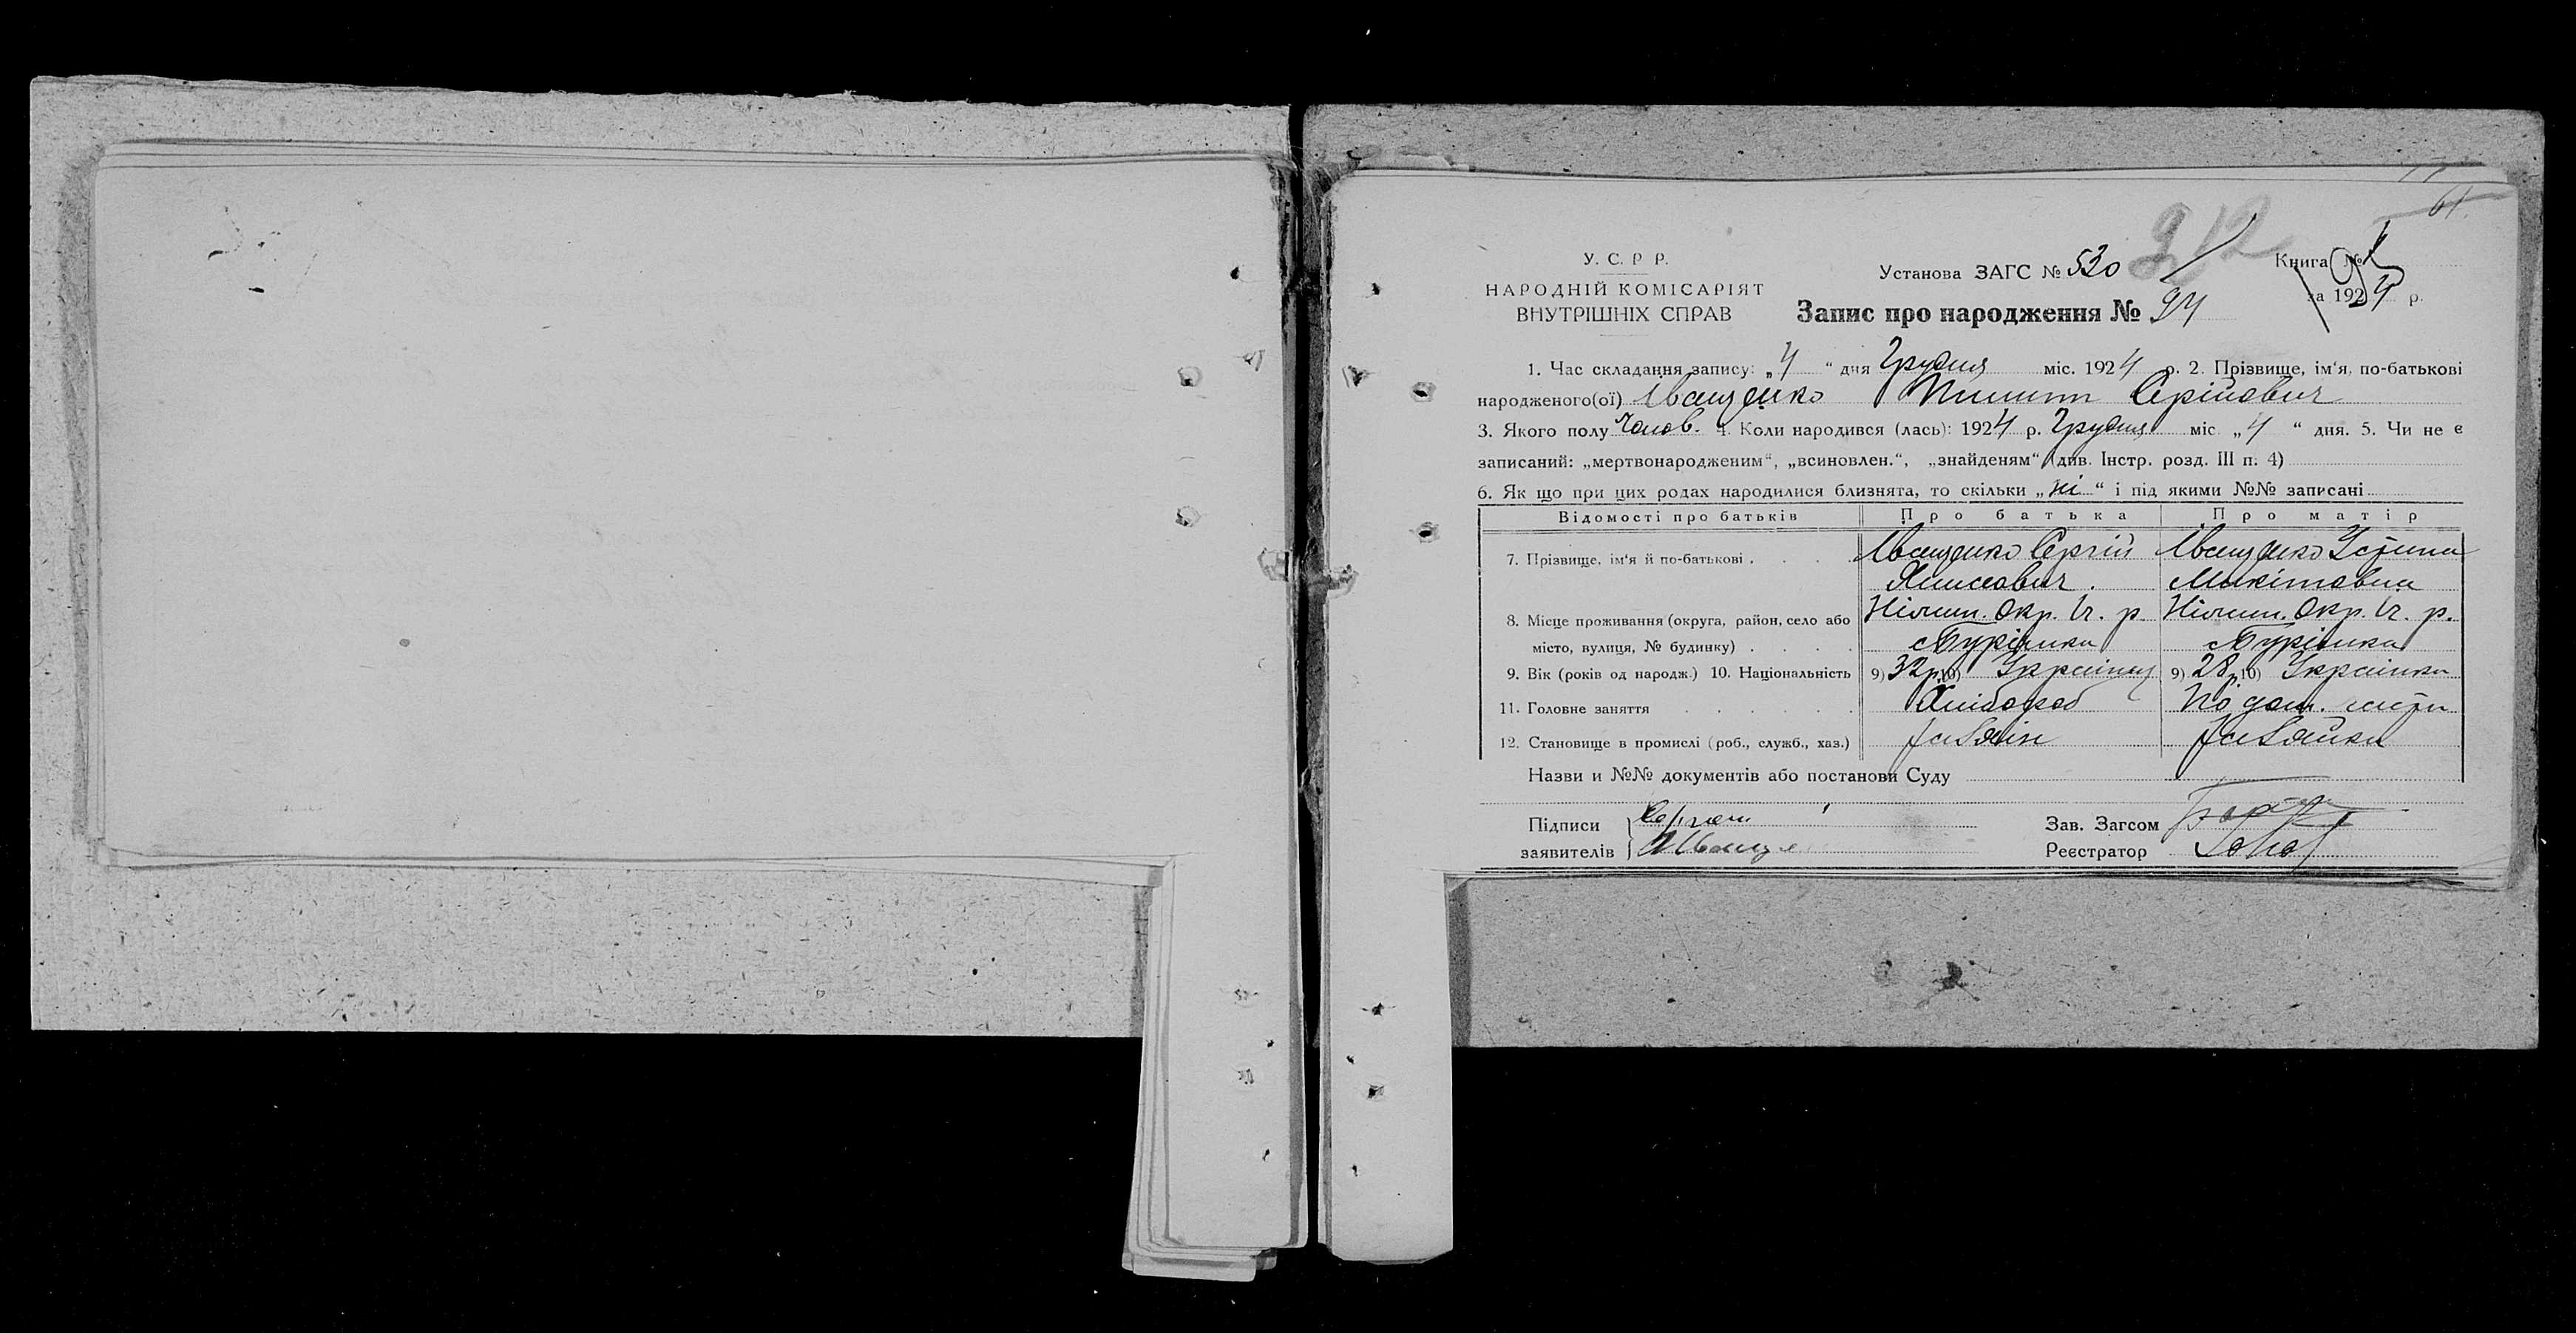 61.
212
У. С. Р Р.
НАРОДНІЙ КОМІСАРІЯТ
ВНУТРІШНІХ СПРАВ
Установа ЗАГС № 530
Книга №
за 1924 р.
Запис про народження № 94
1. Час складання запису: „4“ дня Грудня міс. 1924 р. 2. Прізвище, ім‘я, по-батькові
народженого(ої) Иващенко Пилип Серійович
3. Якого полу Чолов. 4. Коли народився (лась): 1924 р. Грудня міс „4“ дня. 5. Чи не є
записаний: „мертвонародженим“, „всиновлен.“, „знайденям“ (див. Інстр. розд. III п. 4)
6. Як що при цих родах народилися близнята, то скільки „ні“ і під якими №№ записані
Відомості про батьків Про батька Про матір
7. Прізвище, ім‘я й по-батькові . . . . Иващенко Сергій Иващенко Устина
Микітовна
8. Місце проживання (округа, район, село або Ніжин. Окр. Іч. р. Ніжин. Окр. Іч. р.
місто, вулиця, № будинку) . . . .
9. Вік (років од народж.) 10. Національність 9) 32 р. 10) Українец 9) 28 р. 10) Українка
11. Головне заняття . . . . . . Хлібороб По дом.
12. Становище в промислі (роб., служб., хаз.) Хазяін Хазяйка
Назви и №№ документів або постанови Суду
Підписи
заявителів Иваще
Зав. Загсом
Реєстратор